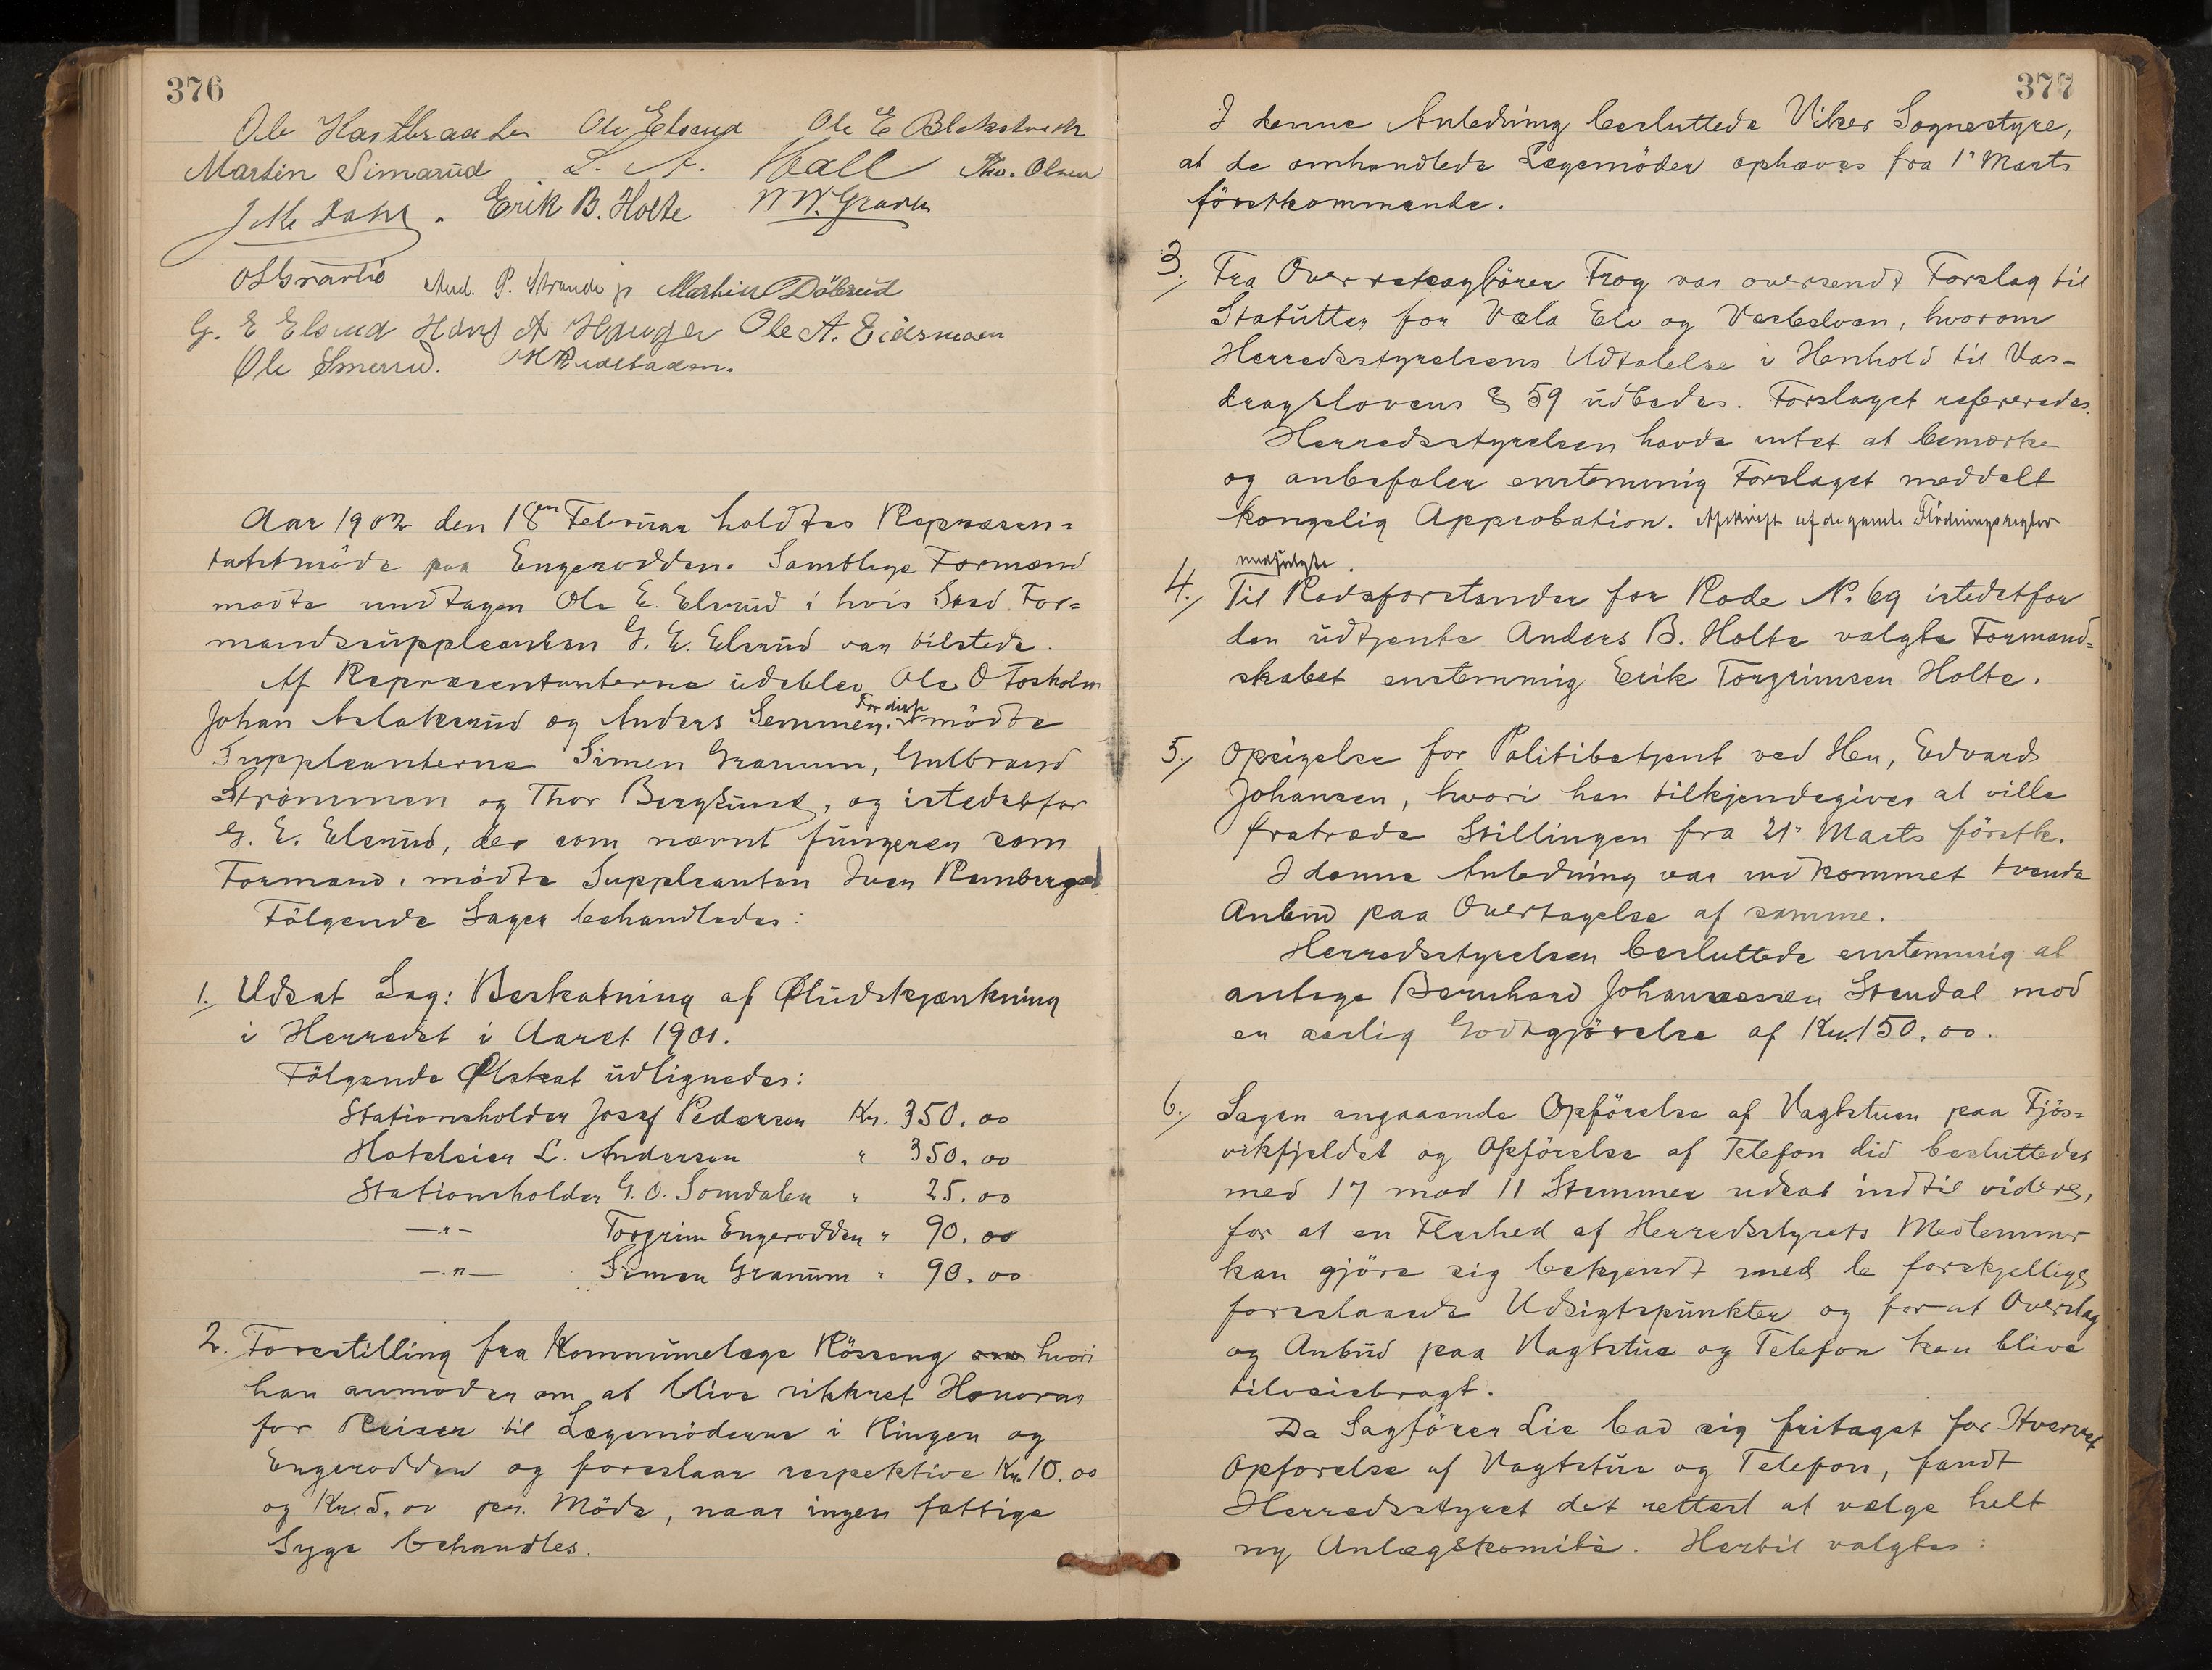 376
Ole Elsrud Ole E Blakstvedt
Martin Simarud L. A. Hall Tho. Olsen
Dahl. Erik B. Holte
And. P. Strande jr Martin Döbrud
G. E Elsrud Hans A Hauger Ole A. Eidsmoen
Ole Smerud.
Aar 1902 den 18en Februar holdtes Repræsen-
tantmöde paa Engerodden. Samtlige Formænd
mødte undtagen Ole E. Elsrud i hvis Sted For-
mandssuppleanten G. E. Elsrud var tilstede.
Af Repræsentanterne udeblev Ole O Fosholm
Johan Aslaksrud og Anders Semmen. For disse mödte
Suppleanterne Simen Granum, Gulbrand
Strömmen og Thor Berglund, og istedetfor
G. E. Elsrud, der som nævnt fungerer som
Formand, mödte Suppleanten Iver Ramberget.
Fölgende Sager behandledes:
1. Udsat Sag: Beskatning af Øludskjænkning
i Herredet i Aaret 1901.
Fölgende Ølskat udlignedes:
Stationsholder Josef Pedersen Kr. 350.00
Hoteleier L. Andersen " 350.00
Stationsholder G. O. Somdalen " 25.00
—"— Torgrim Engerodden " 90.00
—"— Simen Granum " 90.00
2. Forestilling fra Kommunelæge Rösseng hvori
han anmoder om at blive sikkret Honorar
for Reiser til Lægemöderne i Ringen og
Engerodden og foreslaar respektive Kr. 10.00
og Kr. 5.00 pr. Möde, naar ingen fattige
Syge behandles.
377
I denne Anledning besluttede Viker Sognestyre,
at de omhandlede Lægemöder ophæves fra 1' Marts
förstkommende.
3. Fra Overretssagförer Frog var oversendt Forslag til
Statutter for Væla Elv og Vesleelven, hvorom
Herredsstyrelsens Udtalelse i Henhold til Vas-
dragslovens § 59 udbedes. Forslaget refereredes.
Herredsstyrelsen havde intet at bemærke
og anbefaler enstemmig Forslaget meddelt
kongelig Approbation. Afskrift af de gamle Flödningsregler
medfulgte.
4. Til Rodeforstander for Rode No 69 istedetfor
den udtjente Anders B. Holte valgte Formand-
skabet enstemmig Erik Torgrimsen Holte.
5. Opsigelse for Politibetjent ved Hen, Edvard
Johansen, hvori han tilkjendegiver at ville
fratræde Stillingen fra 21' Marts förstk.
I denne Anledning var indkommet tvende
Anbud paa Overtagelse af samme.
Herredsstyrelsen besluttede enstemmig at
antage Bernhard Johannessen Stendal mod
en aarlig Godtgjörelse af Kr. 150.00.
6. Sagen angaaende Opförelse af Vagtstuen paa Fjös-
vikfjeldet og Opförelse af Telefon did besluttedes
med 17 mod 11 Stemmer udsat indtil videre,
for at en Flerhed af Herredsstyrets Medlemmer
kan gjöre sig bekjendt med de forskjellige
foreslaaede Udsigtspunkter og for at Overslag
og Anbud paa Vagtstue og Telefon kan blive
tilveiebragt.
Da Sagförer Lie bad sig fritaget for Hvervet
Opförelse af Vagtstue og Telefon, fandt
Herredsstyret det rettest at vælge helt
ny Anlægskomité. Hertil valgtes: